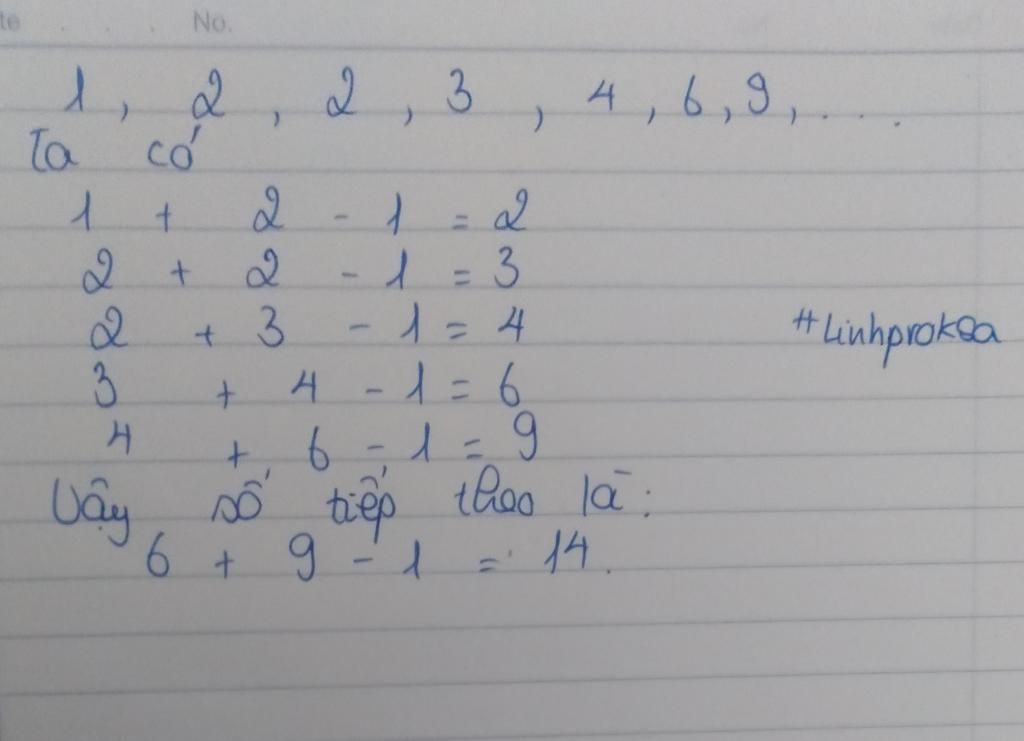 te . . . . No.
1, 2, 2, 3, 4, 6, 9, ...
Ta có
1 + 2 - 1 = 2
2 + 2 - 1 = 3
2 + 3 - 1 = 4
#Linhprok8a
3 + 4 - 1 = 6
4 + 6 - 1 = 9
Vậy số tiếp theo là:
6 + 9 - 1 = 14.